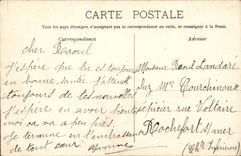 CARTE POSTALE
Tous les pays étrangers n'acceptent pas la correspondance au verso, se renseigner à la Poste.
Correspondance
Adresse
Cher Raoul
J'espère que tu es toujours
en bonne santé J'attend
toujours de tes nouvelles
J'espère en avoir bientôt
moi ça va à peu près
Je termine en t'embrassant
de tout cœur
Monsieur Raoul Landaré
chez Mr Courchinoux
épicier rue Voltaire
Rochefort s/ mer
(Ch. Inférieure)